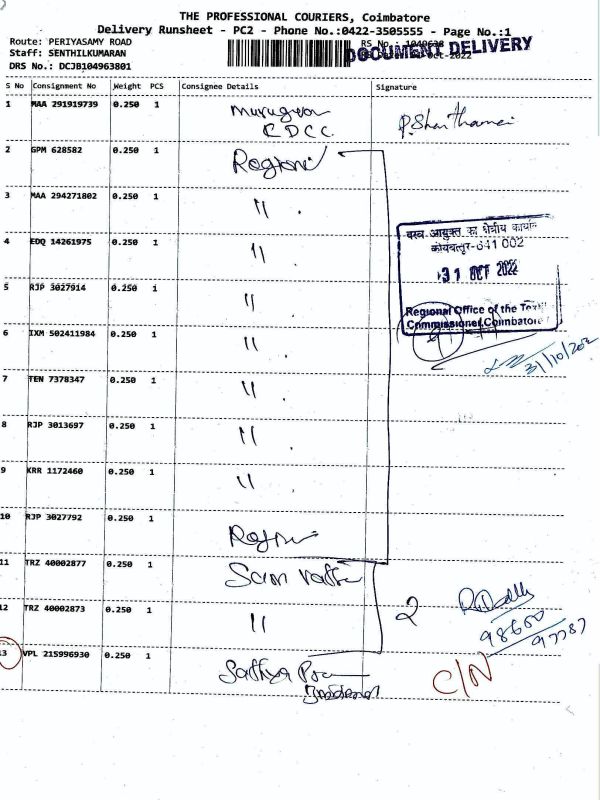 THE PROFESSIONAL COURIERS, Coimbatore
Delivery Runsheet - PC2 - Phone No.:0422-3505555 - Page No.:1
Route: PERIYASAMY ROAD
Staff: SENTHILKUMARAN
DRS No.: DCJB104963801
DOCUMENT DELIVERY
S No Consignment No Weight PCS Consignee Details Signature
1 MAA 291919739 0.250 1
C D C C
2 GPM 628582 0.250 1
3 MAA 294271802 0.250 1 "
4 EDQ 14261975 0.250 1 "
5 RJP 3027914 0.250 1 "
6 IXM 502411984 0.250 1 "
7 TEN 7378347 0.250 1 "
8 RJP 3013697 0.250 1 "
9 KRR 1172460 0.250 1 "
10 RJP 3027792 0.250 1
11 TRZ 40002877 0.250 1
12 TRZ 40002873 0.250 1 " 2
13 VPL 215996930 0.250 1 Sathya
C/N
वस्त्र आयुक्त का क्षेत्रीय
कोयंबत्तूर-641 002
31 OCT 2022
Regional Office of the
Commissioner, Coimbatore
31/10/202
98650
97787